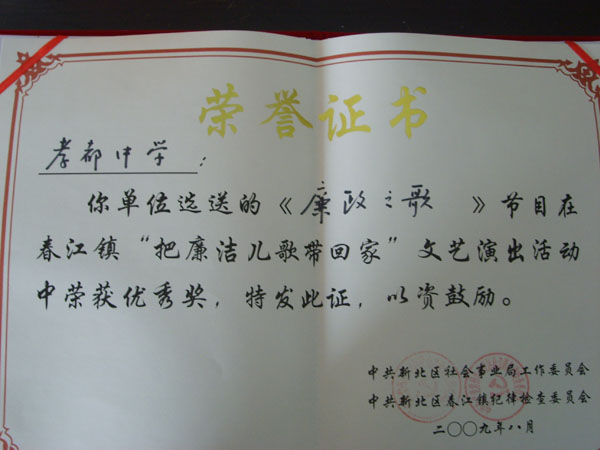 荣誉证书
孝都中学：
你单位选送的《廉政之歌》节目在
春江镇“把廉洁儿歌带回家”文艺演出活动
中荣获优秀奖，特发此证，以资鼓励。
中共新北区社会事业局工作委员会
中共新北区春江镇纪律检查委员会
二〇〇九年八月